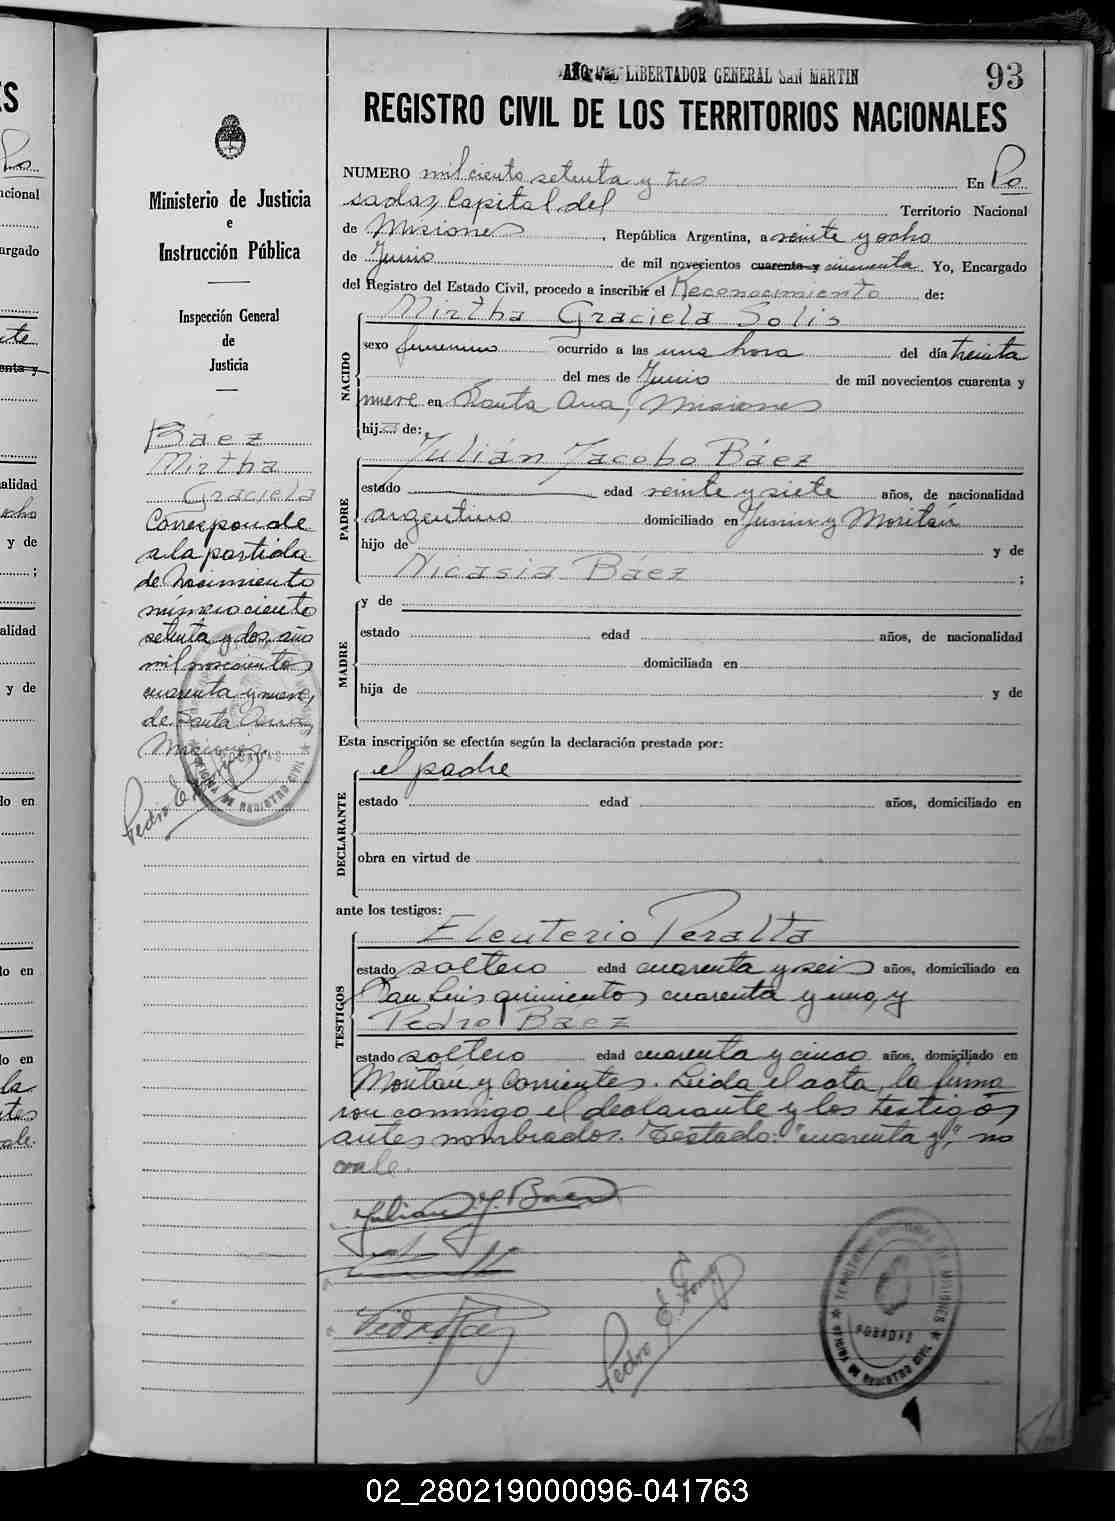 AÑO DEL LIBERTADOR GENERAL SAN MARTIN
93
REGISTRO CIVIL DE LOS TERRITORIOS NACIONALES
NUMERO mil ciento setenta y tres En Po
sadas, Capital del Territorio Nacional
de Misiones, República Argentina, a veinte y ocho
de Junio de mil novecientos cuarenta y cincuenta. Yo, Encargado
del Registro del Estado Civil, procedo a inscribir el Reconocimiento de:
NACIDO
Mirtha Graciela Solis
sexo femenino ocurrido a las una hora del día treinta
del mes de Junio de mil novecientos cuarenta y
nueve en Santa Ana, Misiones
hija de:
PADRE
Julián Jacobo Báez
estado edad veinte y siete años, de nacionalidad
argentino domiciliado en Junin y Moritán
hijo de y de
Nicasia Báez ;
MADRE
y de
estado edad años, de nacionalidad
domiciliada en
hija de y de
Esta inscripción se efectúa según la declaración prestada por:
DECLARANTE
el padre
estado edad años, domiciliado en
obra en virtud de
ante los testigos:
TESTIGOS
Eleuterio Peralta
estado soltero edad cuarenta y seis años, domiciliado en
San Luis quinientos cuarenta y uno, y
Pedro Báez
estado soltero edad cuarenta y cinco años, domiciliado en
Moritán y Corrientes. Leida el acta, la firma
ron conmigo el declarante y los testigos
antes nombrados. Testado: "cuarenta y", no
vale.
Julian J. Baez
Pedro E.
TERRITORIO NACIONAL DE MISIONES
POSADAS
OFICINA DE REGISTRO CIVIL
Ministerio de Justicia
e
Instrucción Pública
Inspección General
de
Justicia
Báez
Mirtha
Graciela
Corresponde
a la partida
de Nacimiento
número ciento
setenta y dos, año
mil novecientos
cuarenta y nueve,
de Santa Ana,
Misiones.
Pedro E.
POSADAS
OFICINA DE REGISTRO CIVIL
ES
cional
argado
enta y
alidad
ocho
y de
;
alidad
y de
do en
do en
do en
la
vale.
02_280219000096-041763